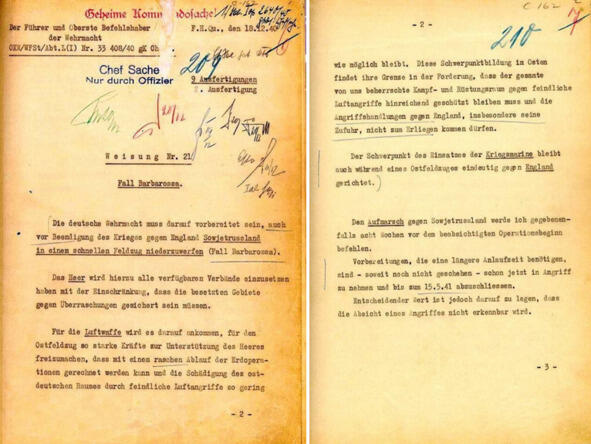 Geheime Kommandosache!
Der Führer und Oberste Befehlshaber
der Wehrmacht
OKW/WFSt/Abt.L(I) Nr. 33 408/40 gK Chefs.
F.H.Qu., den 18.12.40
Chef Sache
Nur durch Offizier
209
9 Ausfertigungen
2. Ausfertigung
Weisung Nr. 21
Fall Barbarossa.
Die deutsche Wehrmacht muss darauf vorbereitet sein, auch
vor Beendigung des Krieges gegen England Sowjetrussland
in einem schnellen Feldzug niederzuwerfen (Fall Barbarossa).
Das Heer wird hierzu alle verfügbaren Verbände einzusetzen
haben mit der Einschränkung, dass die besetzten Gebiete
gegen Überraschungen gesichert sein müssen.
Für die Luftwaffe wird es darauf ankommen, für den
Ostfeldzug so starke Kräfte zur Unterstützung des Heeres
freizumachen, dass mit einem raschen Ablauf der Erdopera-
tionen gerechnet werden kann und die Schädigung des ost-
deutschen Raumes durch feindliche Luftangriffe so gering
- 2 -
- 2 -
210
wie möglich bleibt. Diese Schwerpunktbildung im Osten
findet ihre Grenze in der Forderung, dass der gesamte
von uns beherrschte Kampf- und Rüstungsraum gegen feindliche
Luftangriffe hinreichend geschützt bleiben muss und die
Angriffshandlungen gegen England, insbesondere seine
Zufuhr, nicht zum Erliegen kommen dürfen.
Der Schwerpunkt des Einsatzes der Kriegsmarine bleibt
auch während eines Ostfeldzuges eindeutig gegen England
gerichtet.
Den Aufmarsch gegen Sowjetrussland werde ich gegebenen-
falls acht Wochen vor dem beabsichtigten Operationsbeginn
befehlen.
Vorbereitungen, die eine längere Anlaufzeit benötigen,
sind - soweit noch nicht geschehen - schon jetzt in Angriff
zu nehmen und bis zum 15.5.41 abzuschliessen.
Entscheidender Wert ist jedoch darauf zu legen, dass
die Absicht eines Angriffes nicht erkennbar wird.
- 3 -